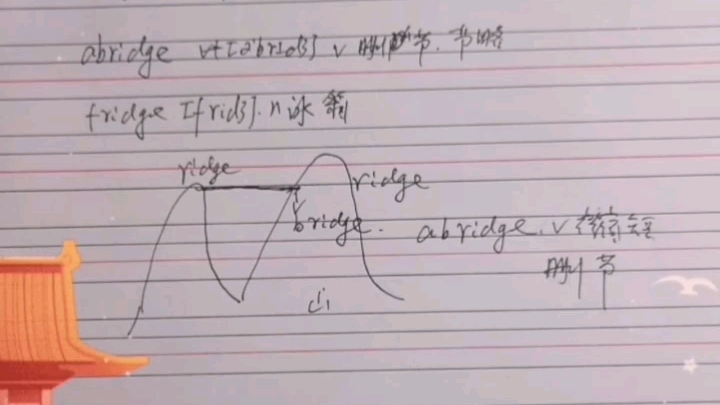 abridge vt [əbrɪdʒ] v 删节. 节略
fridge [fridʒ]. n 冰
ridge
ridge
bridge.
abridge. v 缩短
删节